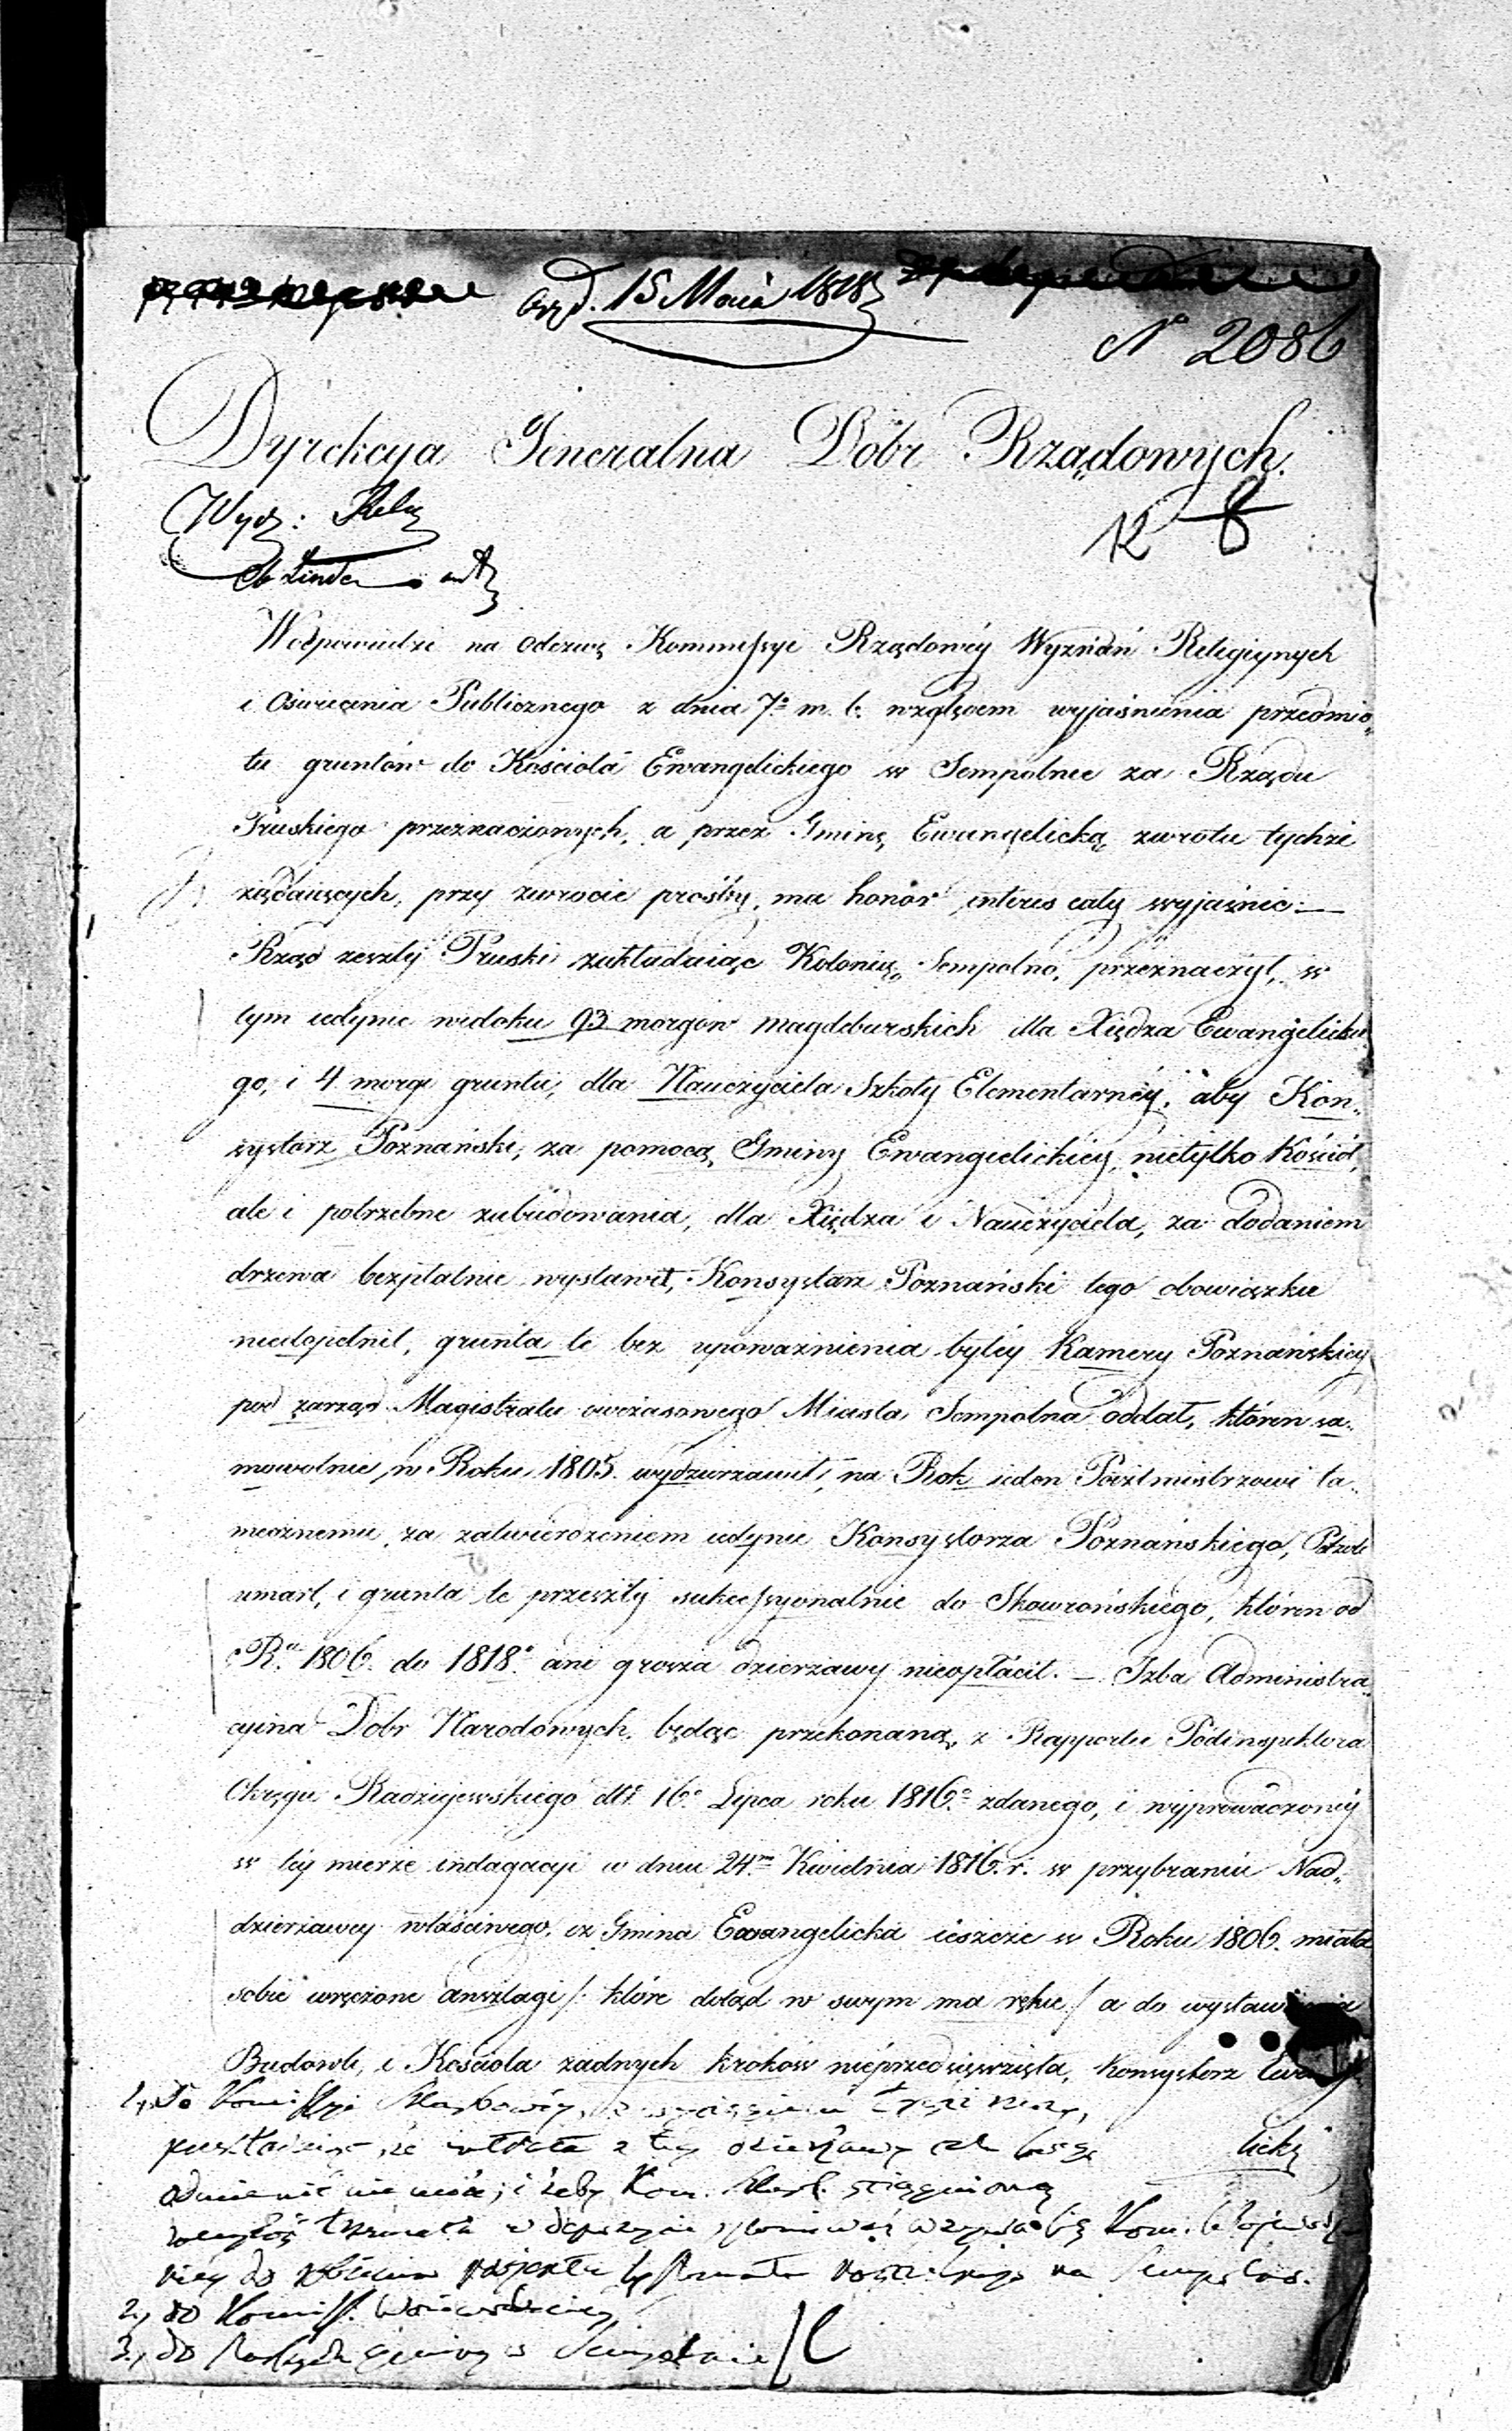 d. 15 Maia 1818
N° 2086
Dyrekcya Generalna Dóbr Rządowych.
Wydz: Relig
12 8
Linde
W odpowiedzi na odezwę Kommissyi Rządowéy Wyznań Religiynych
i Oświecenia Publicznego z dnia 7° m. b. względem wyjaśnienia przedmio„
tu gruntów do Kościoła Ewangelickiego w Sempolnie za Rządu
Pruskiego przeznaczonych, a przez Gminę Ewangelicką zwrotu tychże
żądaiących, przy zwrocie prośby, ma honor interes cały wyjaśnić: —
Rząd zeszły Pruski zakładaiąc Kolonią Sempolno, przeznaczył, w
tym iedynie widoku 93 morgów magdeburskich dla Xiędza Ewangelickie
go, i 4 morgi gruntu, dla Nauczyciela Szkoły Elementarnéy, aby Kon„
systorz Poznański, za pomocą Gminy Ewangielickiéy, nietylko Kościół,
ale i potrzebne zabudowania, dla Xiędza i Nauczyciela, za dodaniem
drzewa bezpłatnie wystawił, Konsystorz Poznański tego obowiązku
niedopełnił, grunta te bez upoważnienia byłéy Kamery Poznańskiey
pod zarząd Magistratu owczasowego Miasta Sempolna oddał, któren sa„
mowolnie w Roku 1805. wydzierżawił, na Rok ieden Poczt mistrzowi ta„
mecznemu, za zatwierdzeniem iedynie Konsystorza Poznańskiego,
umarł, i grunta te przeszły sukcessyonalnie do Skowrońskiego, któren od
R.u 1806. do 1818° ani grosza dzierżawy nieopłacił. — Izba Administra„
cyina Dobr Narodowych będąc przekonaną z Rapportu Podinspektora
Okręgu Radziejewskiego dtt° 16° Lipca roku 1816° zdanego, i wyprowadzonéy
w téy mierze indagacyi w dniu 24m Kwietnia 1816. r. w przybraniu Nad„
dzierżawcy właściwego, iż Gmina Ewangelicka ieszcze w Roku 1806. miała
sobie wręczone anszlagi /: które dotąd w swym ma ręku :/ a do wystawienia
Budowli, i Kościoła żadnych kroków nieprzedsięwzięła, Konsystorz Ewange
licki
1., Do Komissyi Skarbowéy,
że z téy dzierżawy
odmienić nie może; i żeby Kom. Skarb. ściągnioną
w depozycie
do na Sempolno.
2., do Komiss. Woiewódzkiey
3., do gminy w Sempolnie